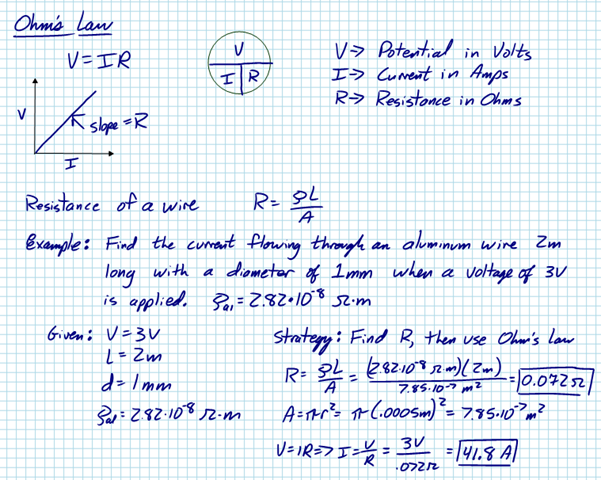 Ohm's Law
V = IR
V
I R
V → Potential in Volts
I → Current in Amps
R → Resistance in Ohms
V
slope = R
I
Resistance of a wire R = ρL/A
Example: Find the current flowing through an aluminum wire 2m
long with a diameter of 1mm when a voltage of 3V
is applied. ρal = 2.82·10⁻⁸ Ω·m
Given: V = 3V
L = 2m
d = 1mm
ρal = 2.82·10⁻⁸ Ω·m
Strategy: Find R, then use Ohm's law
R = ρL/A = (2.82·10⁻⁸ Ω·m)(2m)/7.85·10⁻⁷ m² = 0.072Ω
A = πr² = π(.0005m)² = 7.85·10⁻⁷ m²
V = IR => I = V/R = 3V/.072Ω = 41.8 A